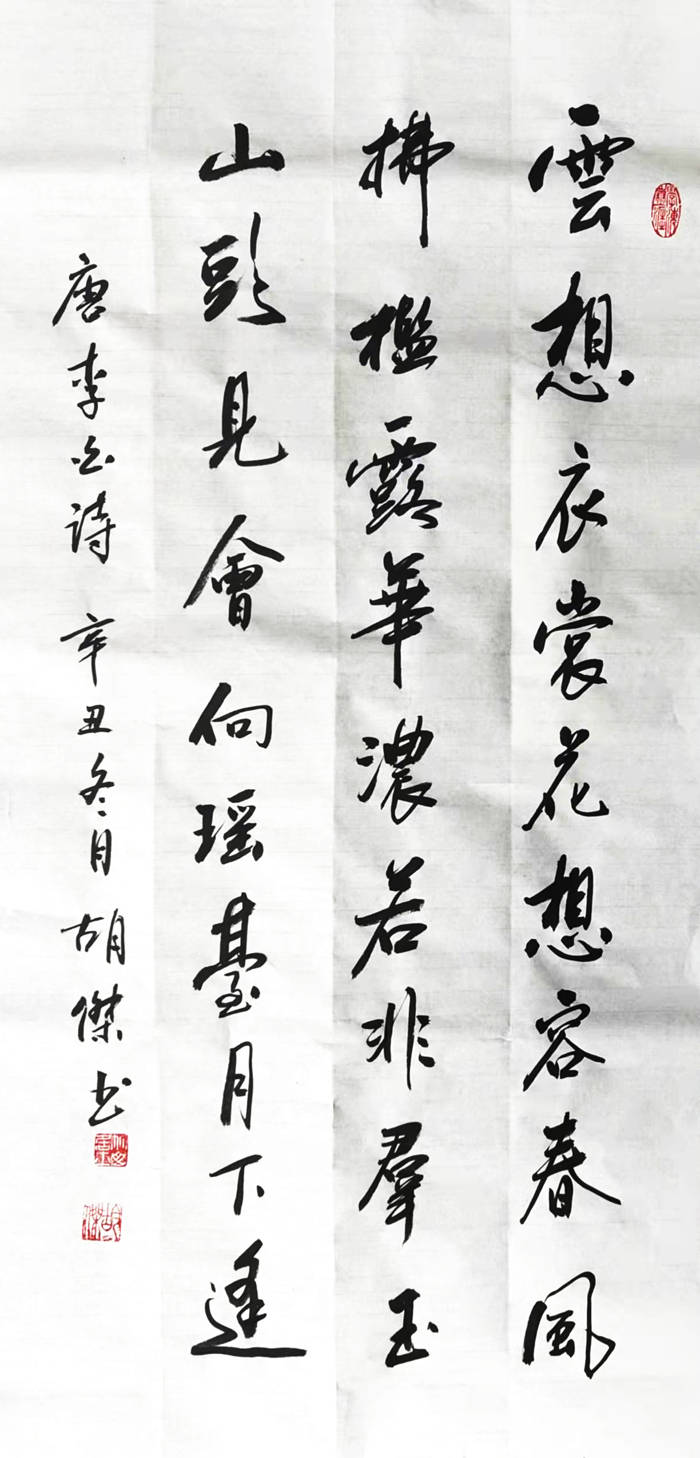 雲想衣裳花想容春風
拂檻露華濃若非羣玉
山頭見會向瑶臺月下逢
唐李白詩 辛丑冬月 胡傑书